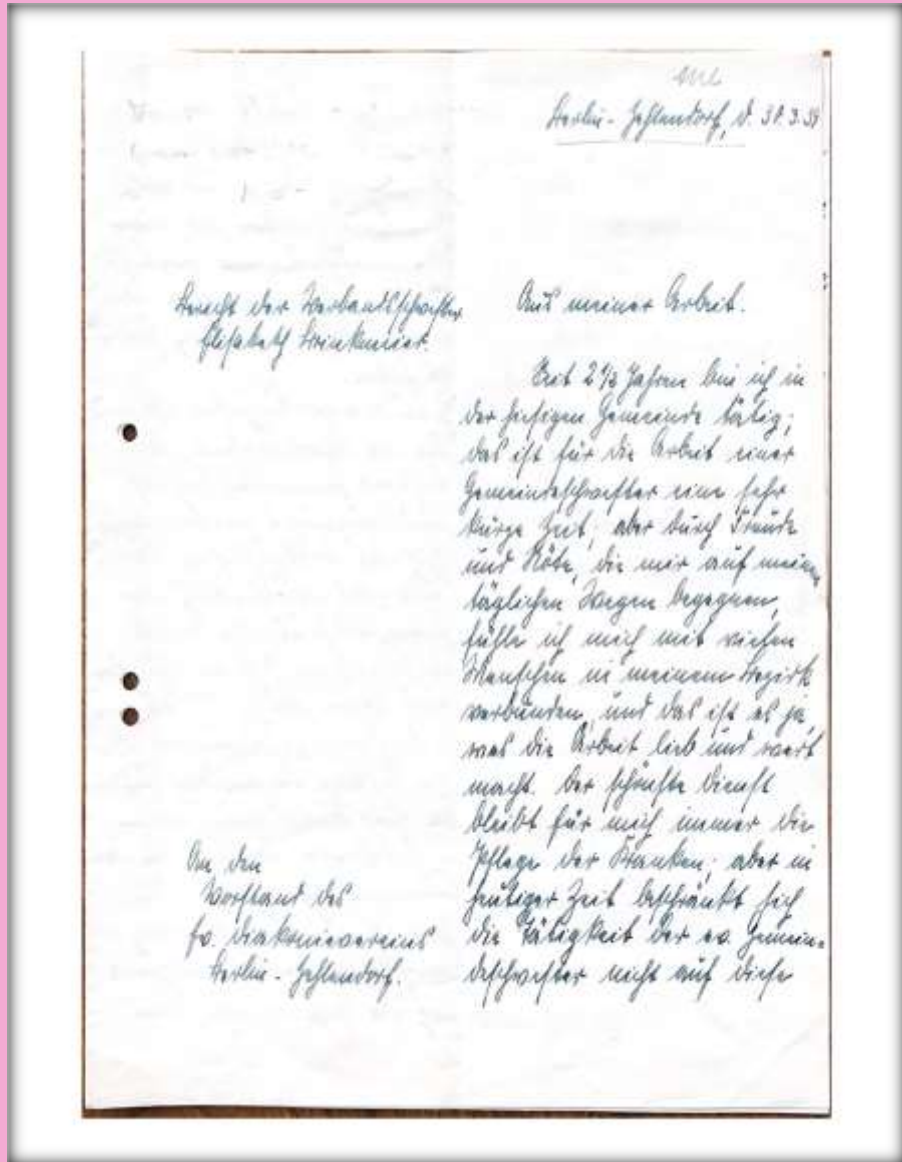 Berlin-Zehlendorf, d. 31.3.39
Bericht der Verbandsschwester
Elisabeth Brinkmeier.
Aus meiner Arbeit.
Seit 2 1/2 Jahren bin ich in
der hiesigen Gemeinde tätig;
das ist für die Arbeit einer
Gemeindeschwester eine sehr
kurze Zeit; aber durch Freude
und Nöte, die mir auf meinen
täglichen Wegen begegnen,
fühle ich mich mit vielen
Menschen in meinem Bezirk
verbunden, und das ist es ja,
was die Arbeit lieb und wert
macht. Der schönste Dienst
bleibt für mich immer die
Pflege der Kranken; aber in
heutiger Zeit beschränkt sich
die Tätigkeit der ev. Gemein-
deschwester nicht auf diese
An den
Vorstand des
Ev. Diakonievereins
Berlin-Zehlendorf.